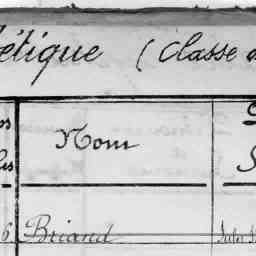 étique (Classe d
Nom
6 Briand